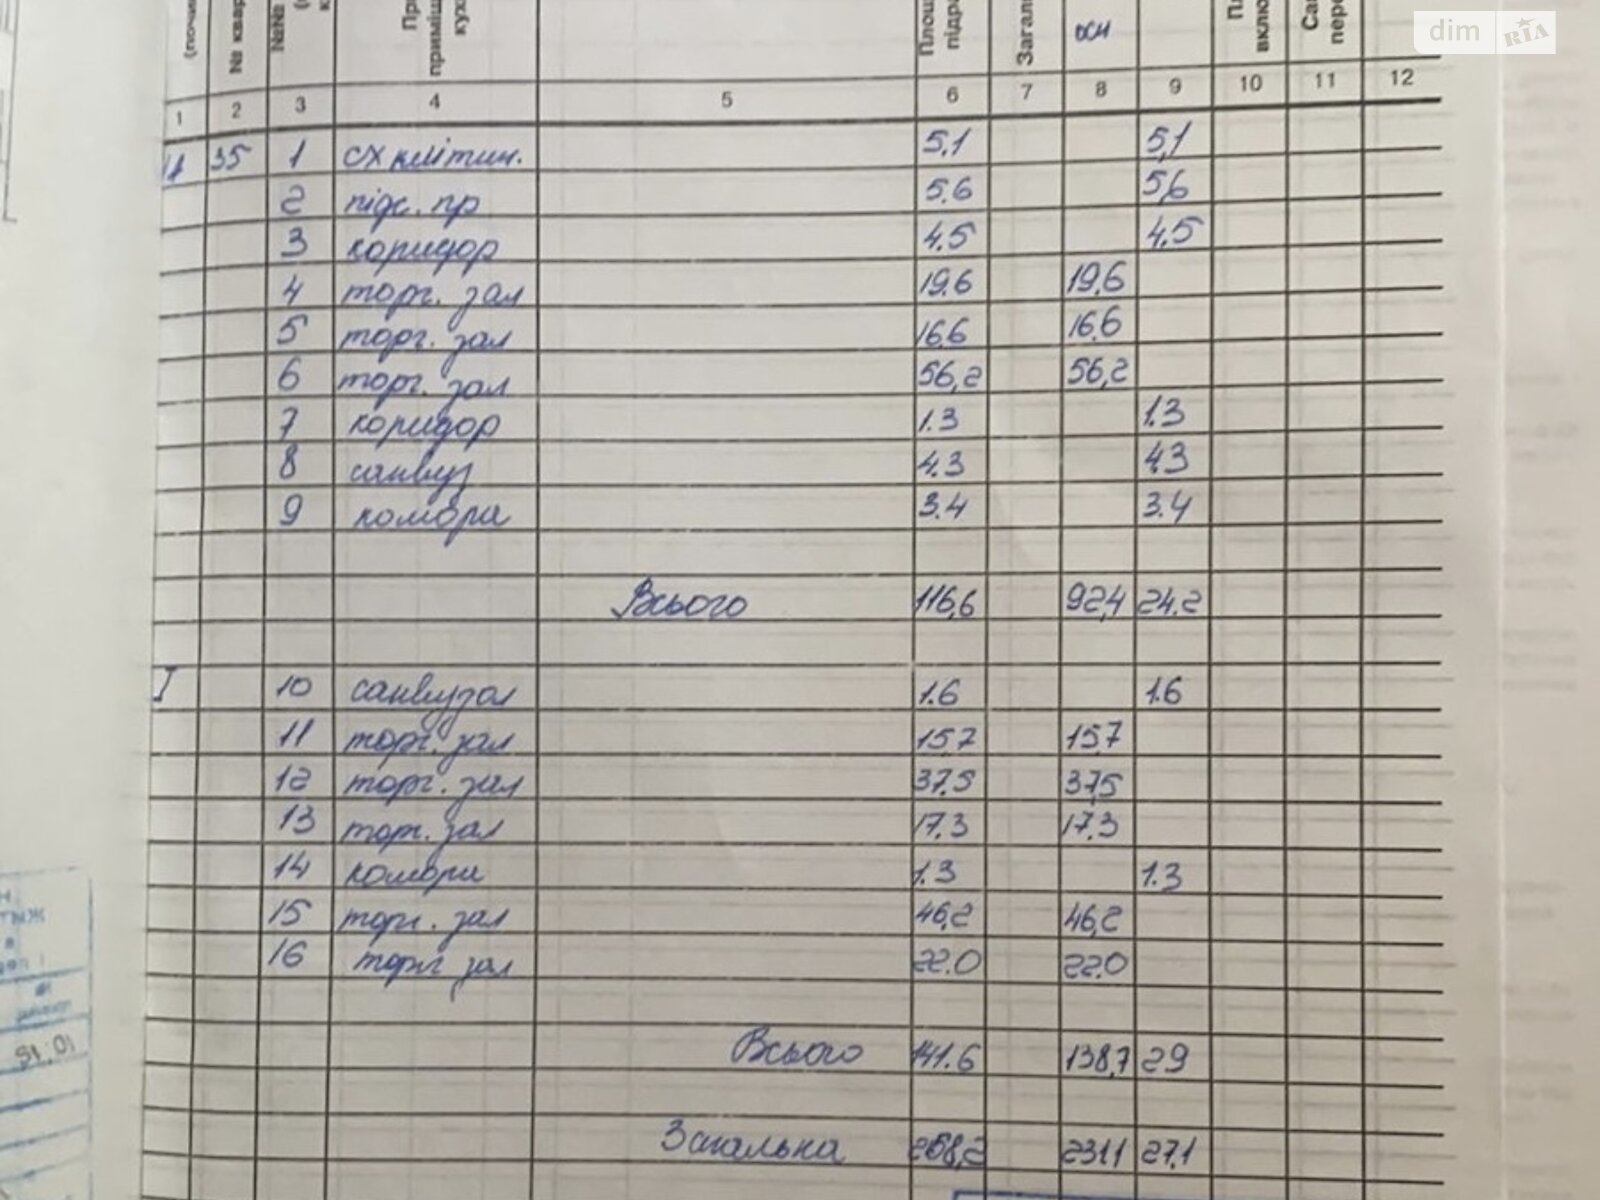 dim RIA
осн
1 2 3 4 5 6 7 8 9 10 11 12
35 1 сх клітин. 5.1 5,1
2 підс. пр 5.6 5,6
3 коридор 4.5 4.5
4 торг. зал 19.6 19,6
5 торг. зал 16.6 16.6
6 торг. зал 56,2 56,2
7 коридор 1.3 1.3
8 санвуз 4.3 4.3
9 комора 3.4 3.4
Всього 116,6 92,4 24.2
I 10 санвузол 1.6 1.6
11 торг. зал 15.7 15,7
12 торг. зал 37.5 37,5
13 торг. зал 17.3 17.3
14 комора 1.3 1.3
15 торг. зал 46,2 46,2
16 торг зал 22.0 22.0
Всього 141.6 138,7 29
Загальна 258,2 231,1 27,1